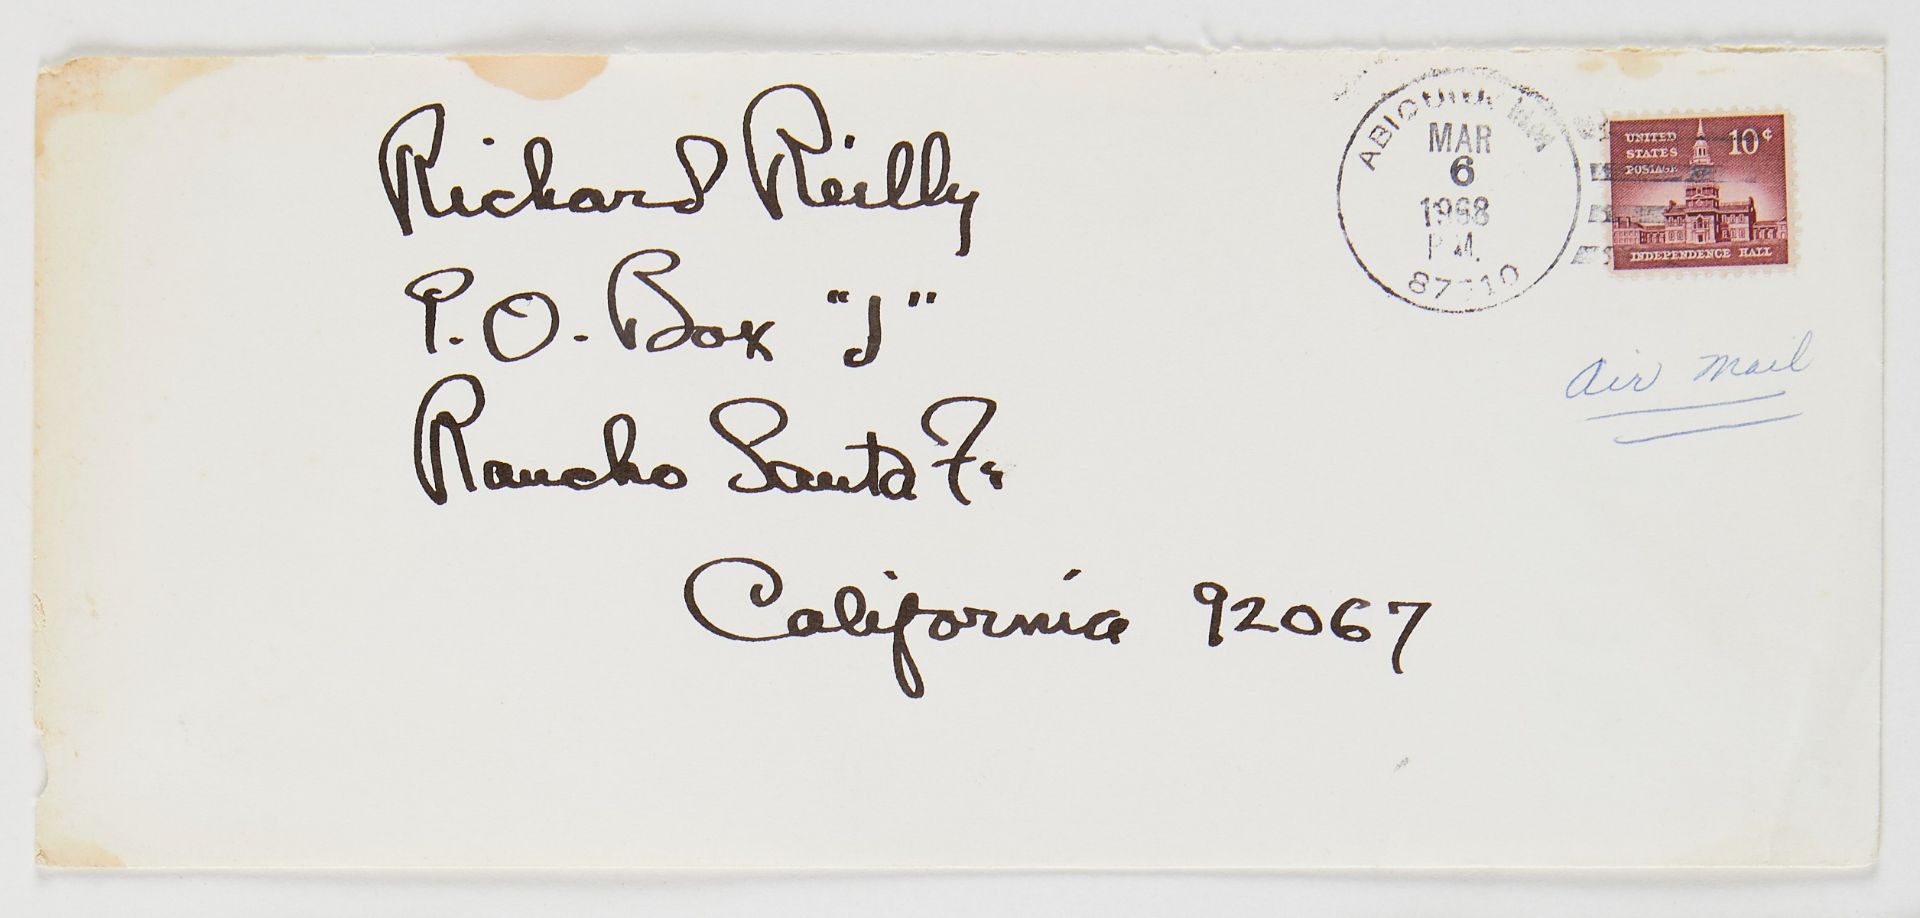 Richard Reilly
P.O. Box "J"
Rancho Santa Fe
California 92067
ABIQUIU, N.M.
MAR
6
1968
P.M.
UNITED
STATES
POSTAGE
10¢
INDEPENDENCE HALL
Air Mail